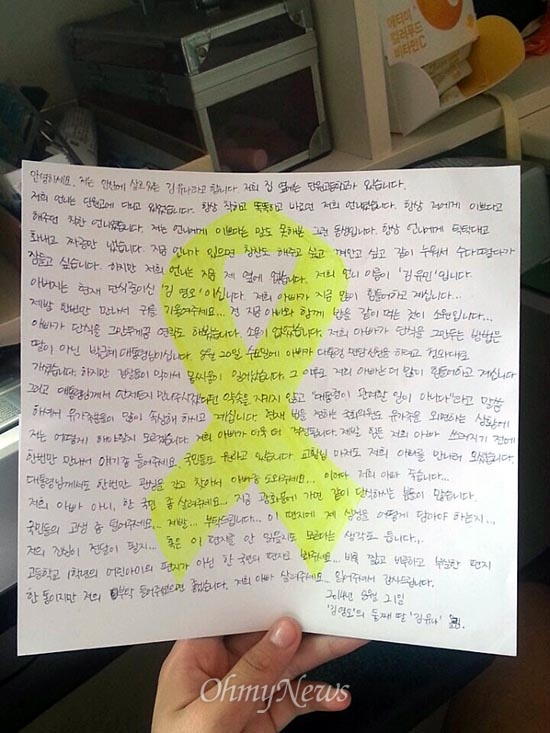 에터미
컬러푸드
비타민C
안녕하세요. 저는 안산에 살고있는 김유나라고 합니다. 저희 집 옆에는 단원고등학교가 있습니다.
저희 언니는 단원고에 다니고 있었습니다. 항상 착하고 똑똑하고 바르던 저희 언니였습니다. 항상 저에게 이쁘다고
해주던 착한 언니였습니다. 저는 언니에게 이쁘다는 말도 못해본 그런 동생입니다. 항상 언니에게 툴툴대고
화내고 짜증만 냈습니다. 지금 언니가 있으면 칭찬도 해주고 싶고 껴안고 싶고 같이 누워서 수다떨다가
잠들고 싶습니다. 하지만 저희 언니는 지금 제 옆에 없습니다. 저희 언니 이름이 '김유민'입니다.
아버지는 현재 단식중이신 '김영오'이십니다. 저희 아빠가 지금 많이 힘들어하고 계십니다...
제발 한번만 만나서 귀를 기울여주세요... 전 지금 아빠와 함께 밥을 같이 먹는 것이 소원입니다...
아빠가 단식을 그만두게끔 연락도 해봤습니다. 소용이 없었습니다. 저희 아빠가 단식을 그만두는 방법은
딸이 아닌 박근혜 대통령님이십니다. 8월 20일 수요일에 아빠가 대통령 면담신청을 하려고 청와대로
가셨습니다. 하지만 경찰들이 막아서 몸싸움이 일어났습니다. 그 이후로 저희 아빠는 더 많이 힘들어하고 계십니다.
그리고 대통령님께서 언제든지 만나주시겠다던 약속을 지키지 않고 "대통령이 관여할 일이 아니다"라고 말씀
하셔서 유가족분들이 많이 속상해 하시고 계십니다. 현재 법을 정하는 국회의원도 유가족을 외면하는 상황에
저는 어떻게 해야할지 모르겠습니다. 저희 아빠가 더욱 더 걱정됩니다. 제발 힘든 저희 아빠 쓰러지기 전에
한번만 만나서 얘기 좀 들어주세요. 국민들도 원하고 있습니다. 교황님 마저도 저희 아빠를 만나러 와주셨습니다.
대통령님께서도 한번만 관심을 갖고 찾아서 아빠 좀 도와주세요... 이러다 저희 아빠 죽습니다...
저희 아빠 아니, 한 국민 좀 살려주세요... 지금 광화문에 가면 같이 단식하는 분들이 많습니다.
국민들의 고생 좀 덜어주세요... 제발... 부탁드립니다... 이 편지에 제 심정을 어떻게 담아야 하는지...
저의 진심이 전달이 될지... 혹은 이 편지를 안 읽을지도 모른다는 생각도 듭니다...
고등학교 1학년의 어린아이의 편지가 아닌 한 국민의 편지로 봐주세요... 비록 짧고 부족하고 부실한 편지
한 통이지만 저의 부탁 들어주셨으면 좋겠습니다. 저희 아빠 살려주세요... 읽어주셔서 감사드립니다.
2014년 8월 21일
'김영오'의 둘째 딸 '김유나' 올림.
OhmyNews